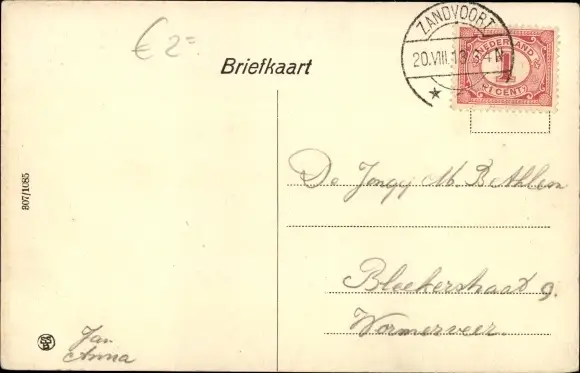 € 2=
Briefkaart
ZANDVOORT
20.VIII.13 3-4N
NEDERLAND
1
CENT
B07/1085
De Jongej M. Bethlem
Bleekerstraat 9.
Wormerveer.
Jan
Anna